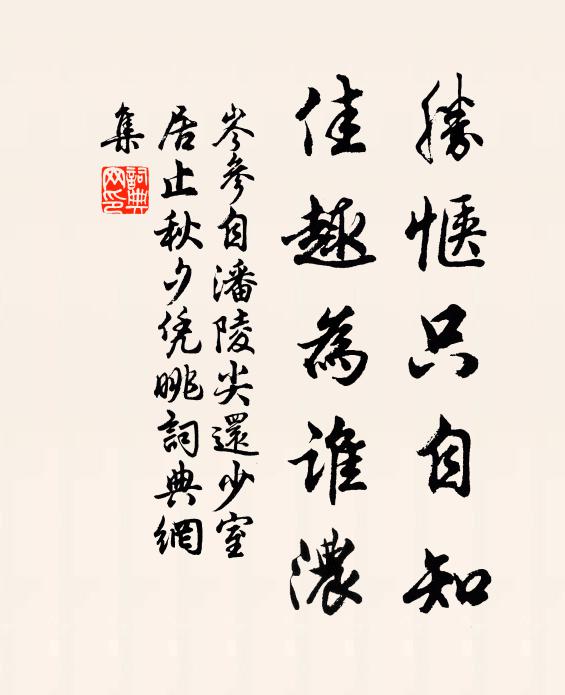 勝愜只自知
佳趣為誰濃
岑參自潘陵尖還少室
居止秋夕凭眺詞典網
集
詞典網印